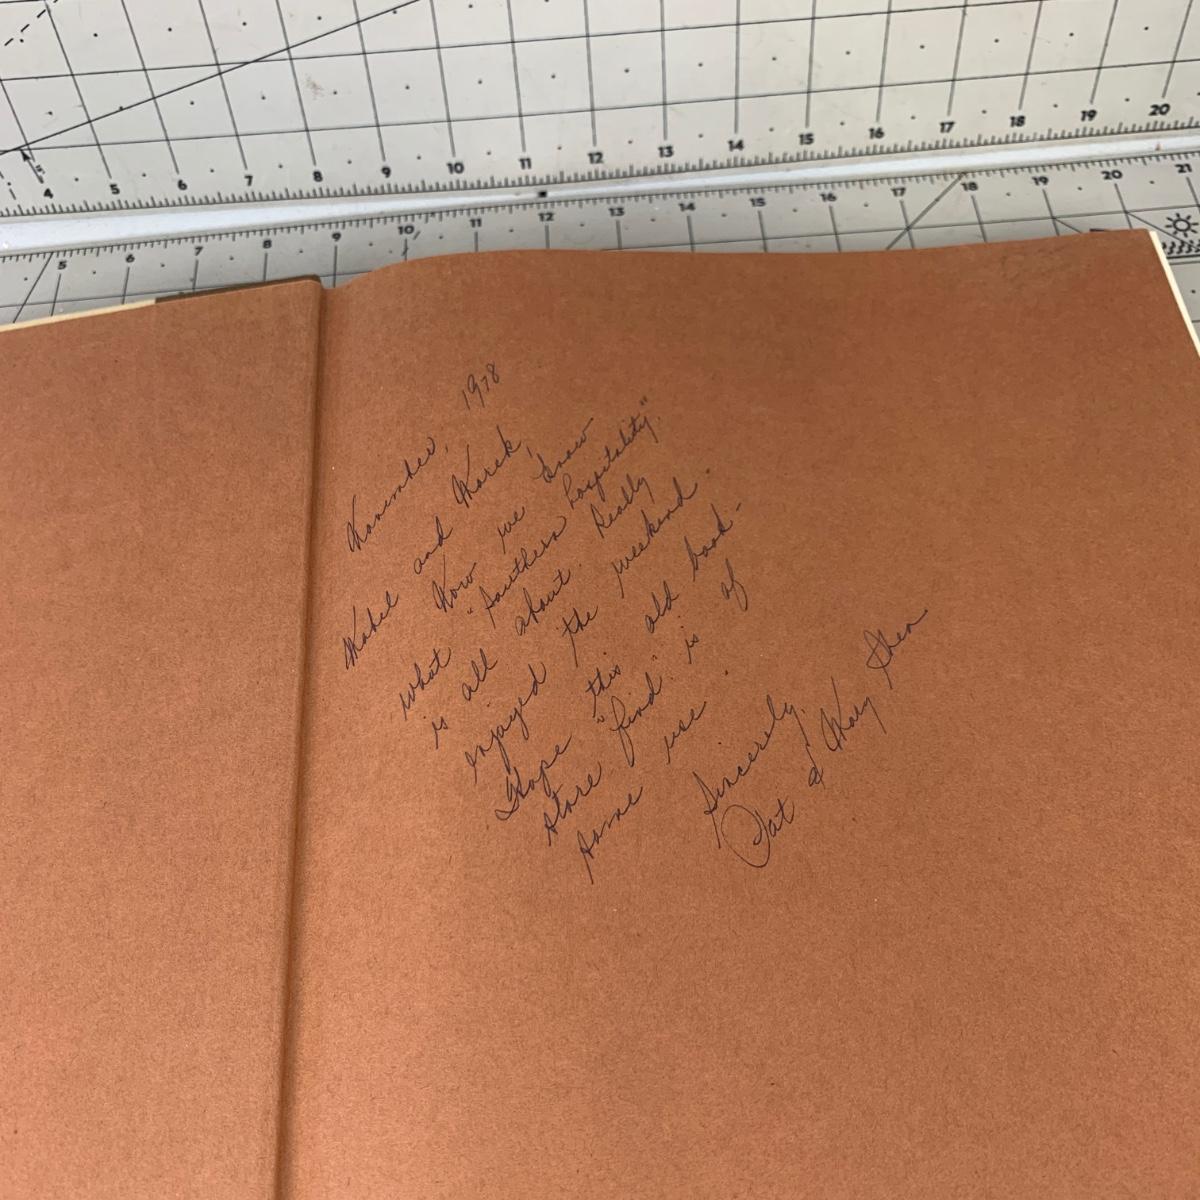 4 5 6 7 8 9 10 11 12 13 14 15 16 17 18 19 20
5 6 7 8 9 10 11 12 13 14 15 16 17 18 19 20 21
November, 1978
Mabel and Marek,
Now we know
what "Southern hospitality"
is all about. Really
enjoyed the weekend.
Hope this old book-
store "find" is of
some use.
Sincerely,
Pat & Mary Shea